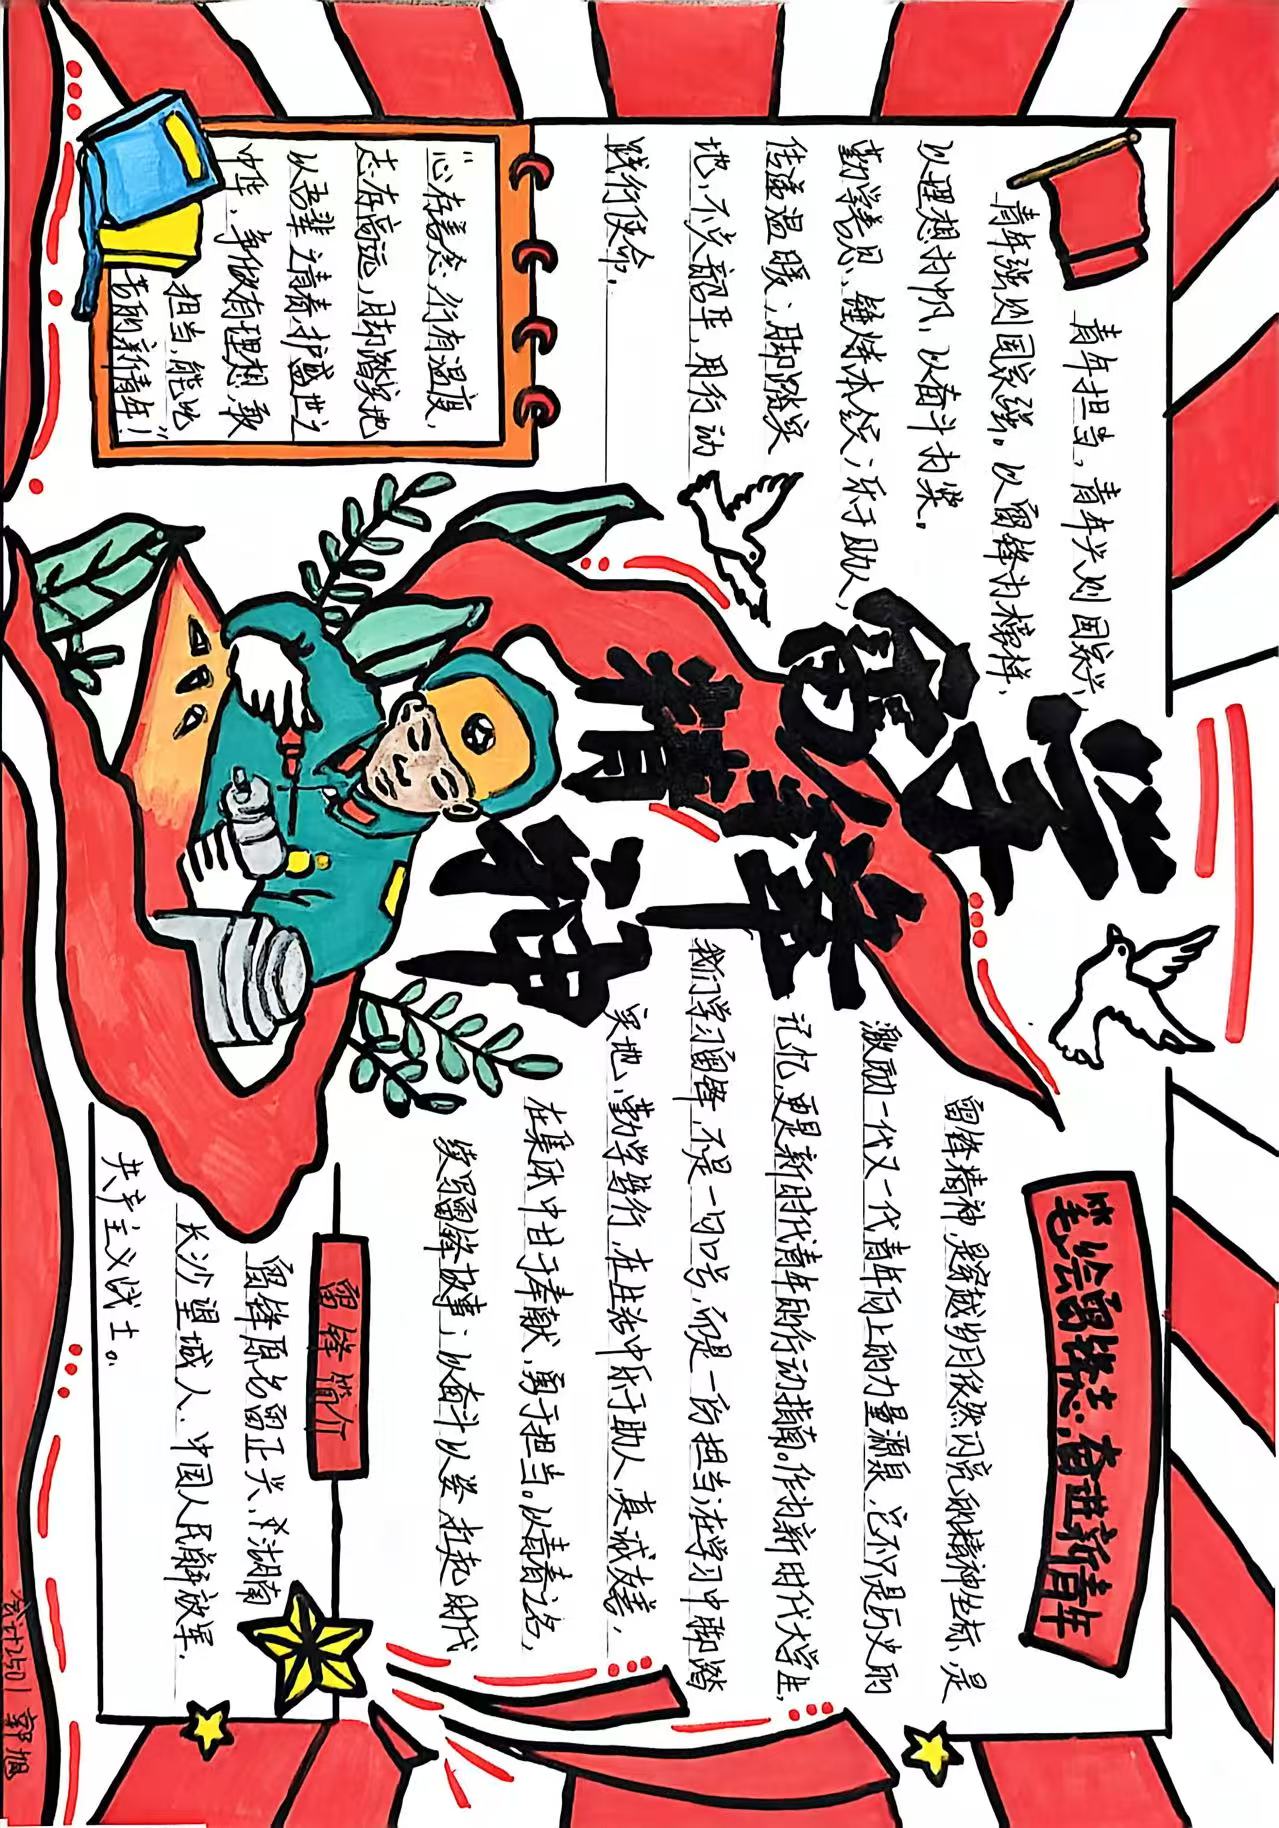 学雷锋精神
青年担当，青年兴则国家兴，
青年强则国家强。以雷锋为榜样，
以理想为帆，以奋斗为桨。
勤学善思、锤炼本领；乐于助人，
传递温暖；脚踏实
地，不负韶华，用行动
践行使命。
“心存善念，行有温度，
志存高远，脚踏实地
以吾辈之青春，护盛世之
中华，争做有理想，敢
担当，能吃
苦的新青年！”
笔绘雷锋志，奋进新青年
雷锋精神，是穿越岁月依然闪亮的精神坐标，是
激励一代又一代青年向上的力量源泉，它不仅是历史的
记忆，更是新时代青年的行动指南。作为新时代大学生，
我们学习雷锋，不是一句口号，而是一份担当；在学习中脚踏
实地、勤学笃行，在生活中乐于助人，真诚友善，
在集体中甘于奉献，勇于担当。以青春之名，
续写雷锋故事；以奋斗以姿，起时代
雷锋简介
雷锋原名雷正兴，湖南
长沙望城人、中国人民解放军，
共产主义战士。